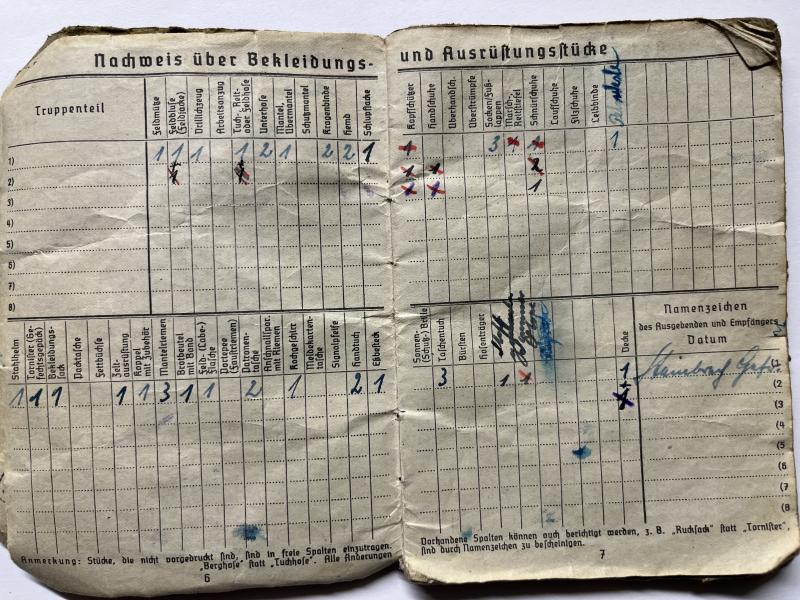 Nachweis über Bekleidungs-
Truppenteil
Feldmütze
Feldbluse
(Feldjacke)
Drillichzeug
Arbeitsanzug
Tuch-, Reit-
oder Feldhose
Unterhose
Mantel,
Übermantel
Schutzmantel
Kragenbinde
Hemd
Schlupfjacke
1) 1 1 1 1 2 1 2 2 1
2)
3)
4)
5)
6)
7)
8)
Stahlhelm
Tornister (Ge-
fechtsgepäck)
Bekleidungs-
sack
Packtasche
Fettbüchse
Zelt-
ausrüstung
Koppel
mit Zubehör
Mantelriemen
Brotbeutel
mit Band
Feld-(Labe-)
Flasche
Portepee
(Faustriemen)
Patronen-
tasche
Rückgeschirr
Meldekarten-
tasche
Signalpfeife
Handtuch
Eßbesteck
1 1 1 1 1 3 1 1 2 1 2 1
Anmerkung: Stücke, die nicht vorgedruckt sind, sind in freie Spalten einzutragen.
„Berghose" statt „Tuchhose". Alle Änderungen
6
und Ausrüstungsstücke
Kopfschützer
Handschuhe
Überhandsch.
Überstrümpfe
Socken/Fuß-
lappen
Marsch-,
Reitstiefel
Schnürschuhe
Laufschuhe
Filzschuhe
Leibbinde
1 3 1 1
1 2
1
Sonnen-
(Schutz-) Brille
Taschentuch
Bürsten
Hosenträger
Decke
Namenzeichen
des Ausgebenden und Empfängers
Datum
3 1 1 1 (1
(2
(3
(4
(5
(6
(7
(8
Vorhandene Spalten können auch berichtigt werden, z. B. „Rucksack" statt „Tornister",
sind durch Namenzeichen zu bescheinigen.
7